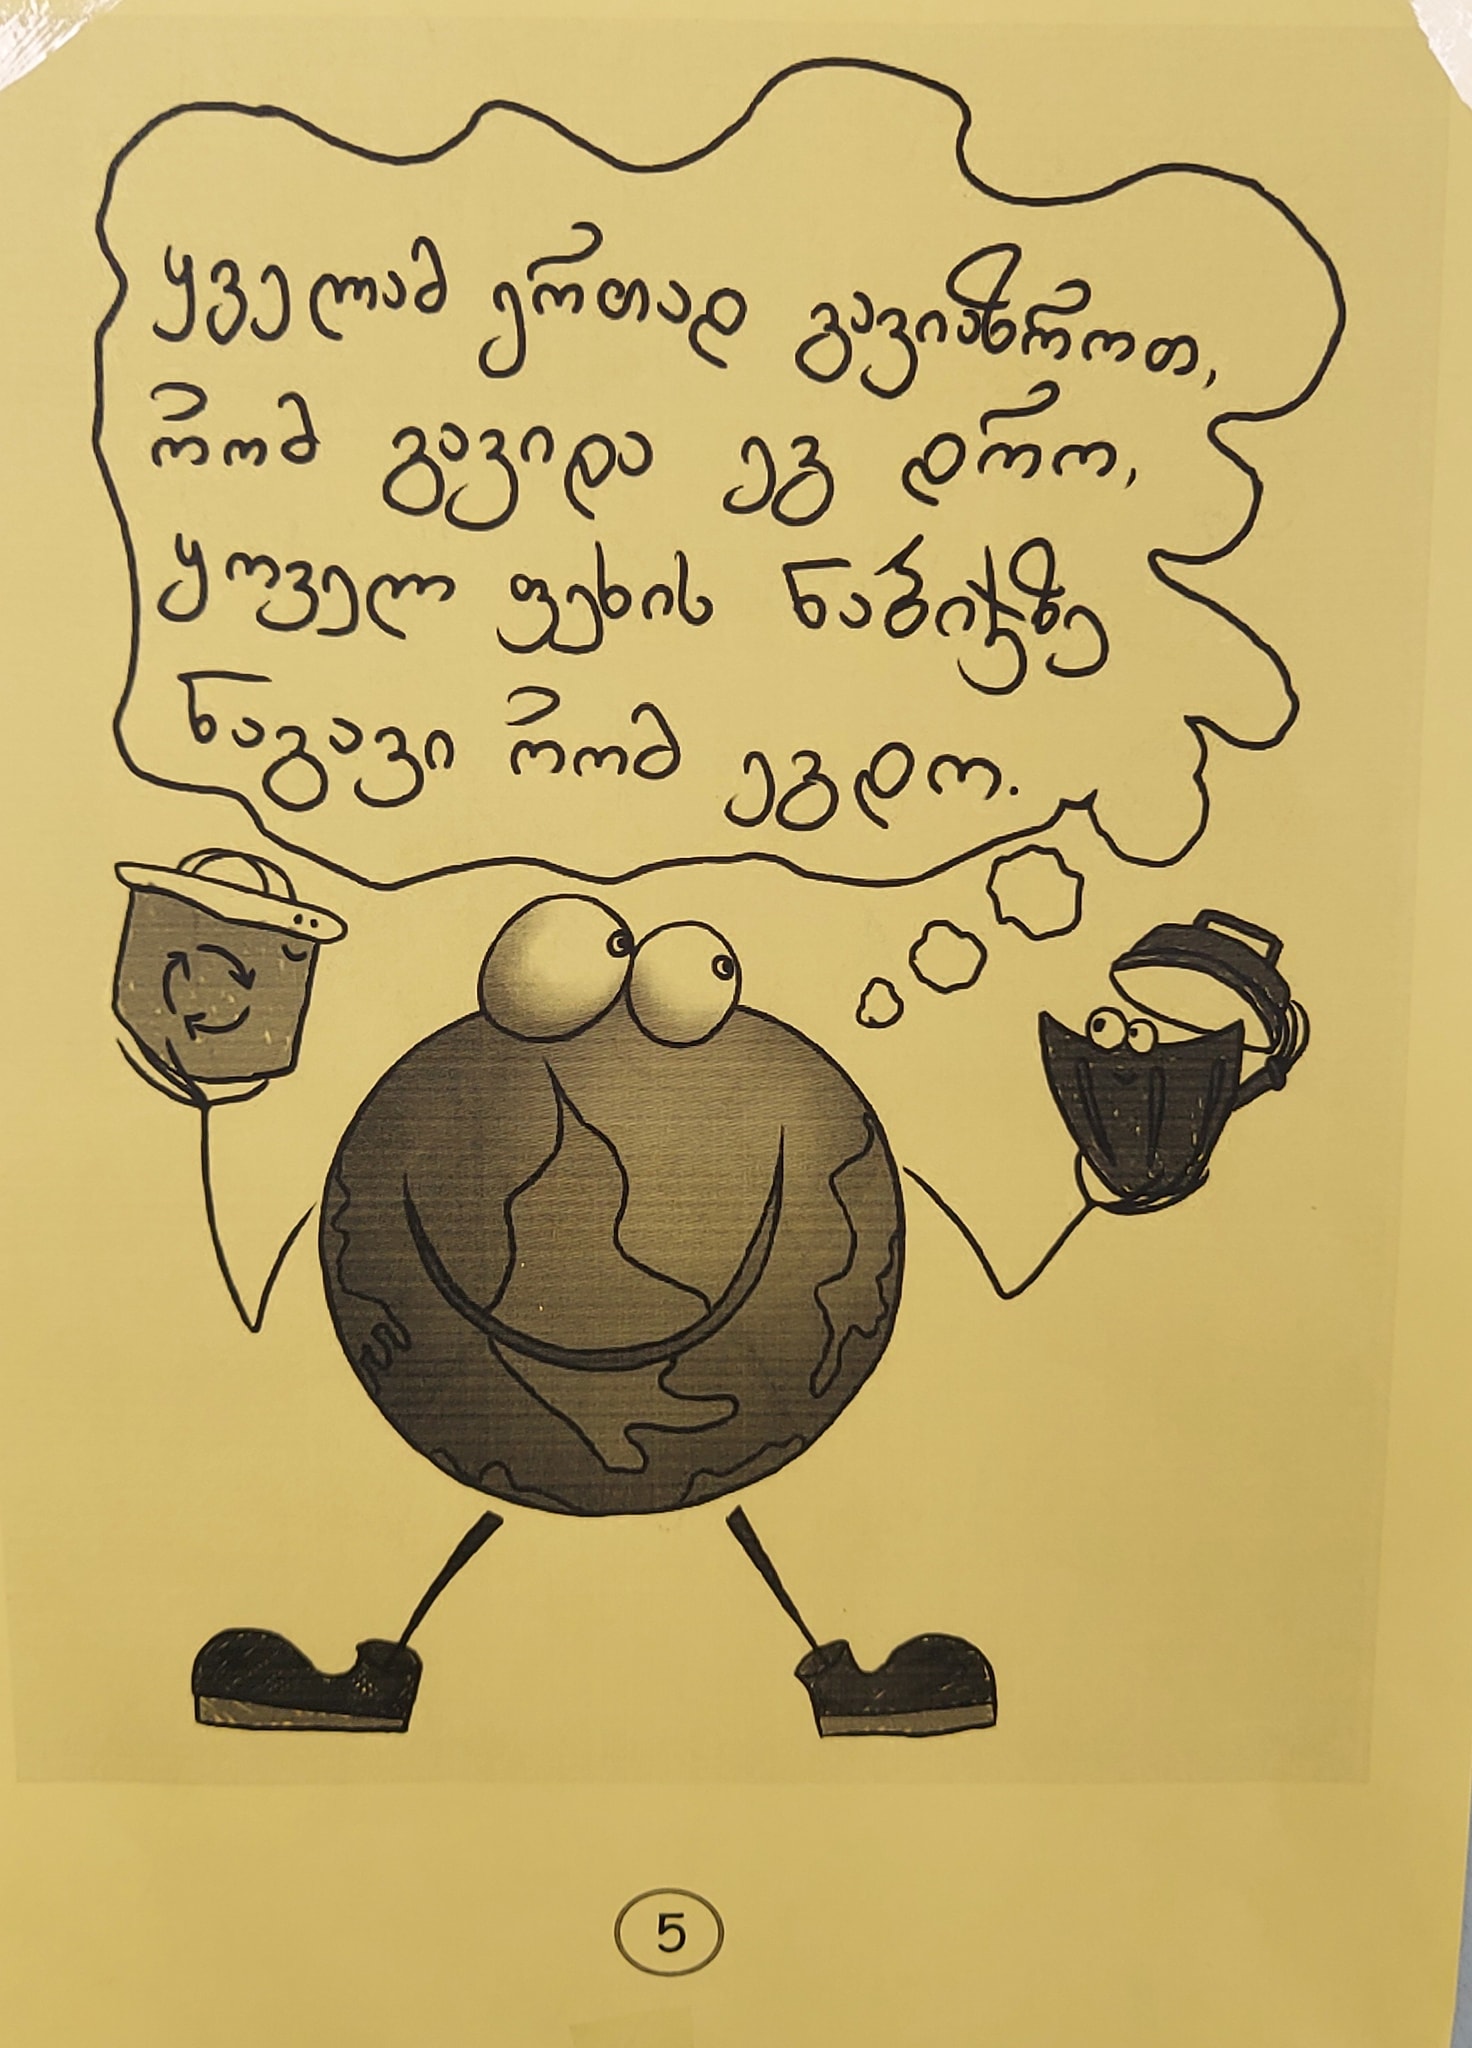 ყველამ ერთად გავიაზროთ,
რომ გავიდა ეგ დრო,
ყოველ ფეხის ნაბიჯზე
ნაგავი რომ ეგდო.
5